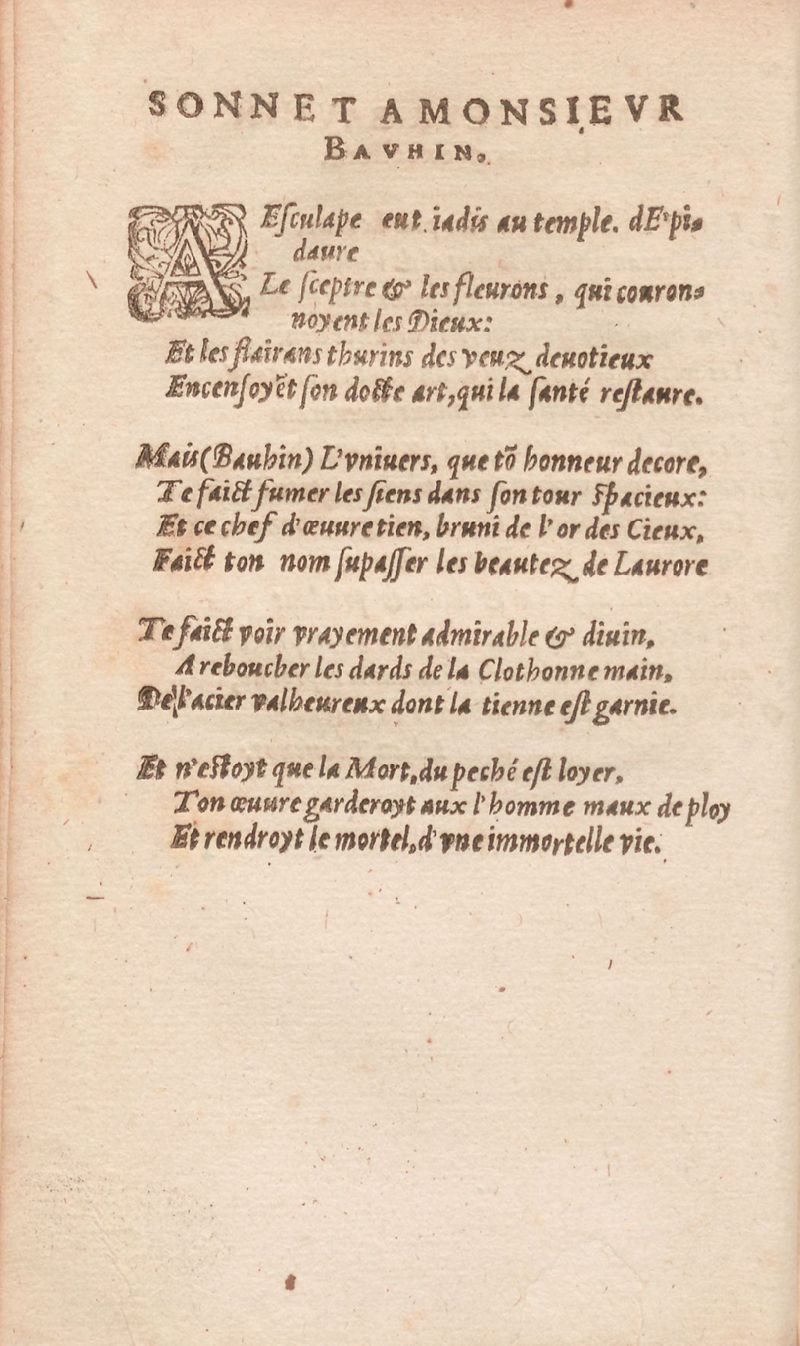 SONNET A MONSIEVR
BAVHIN.
AEſculape eut iadis au temple. dEpi-
daure
Le ſceptre & les fleurons, qui couron-
noyent les Dieux:
Et les flairans thurins des veuz deuotieux
Encenſoyēt ſon docte art, qui la ſanté reſtaure.
Mais (Bauhin) L'vniuers, que tõ honneur decore,
Te faict fumer les ſiens dans ſon tour ſpacieux:
Et ce chef d'œuure tien, bruni de l'or des Cieux,
Faict ton nom ſupaſſer les beautez de Laurore
Te faict voir vrayement admirable & diuin,
A reboucher les dards de la Clothonne main,
De l'acier valheureux dont la tienne eſt garnie.
Et n'eſtoyt que la Mort, du peché eſt loyer,
Ton œuure garderoyt aux l'homme maux de ploy
Et rendroyt le mortel, d'vne immortelle vie.